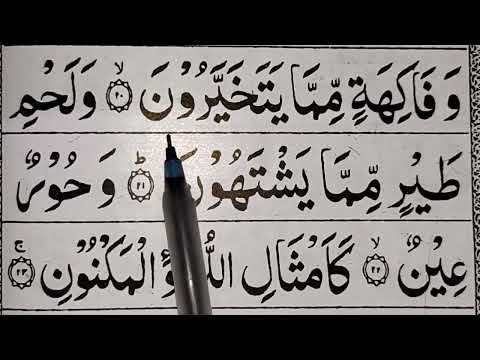 وَ فَاكِهَةٍ مِّمَّا يَتَخَيَّرُوْنَ ۙ﴿۲۰﴾ وَ لَحْمِ
طَيْرٍ مِّمَّا يَشْتَهُوْنَ ؕ﴿۲۱﴾ وَ حُوْرٌ
عِيْنٌ ۙ﴿۲۲﴾ كَاَمْثَالِ اللُّؤْلُؤِ الْمَكْنُوْنِ ۚ﴿۲۳﴾